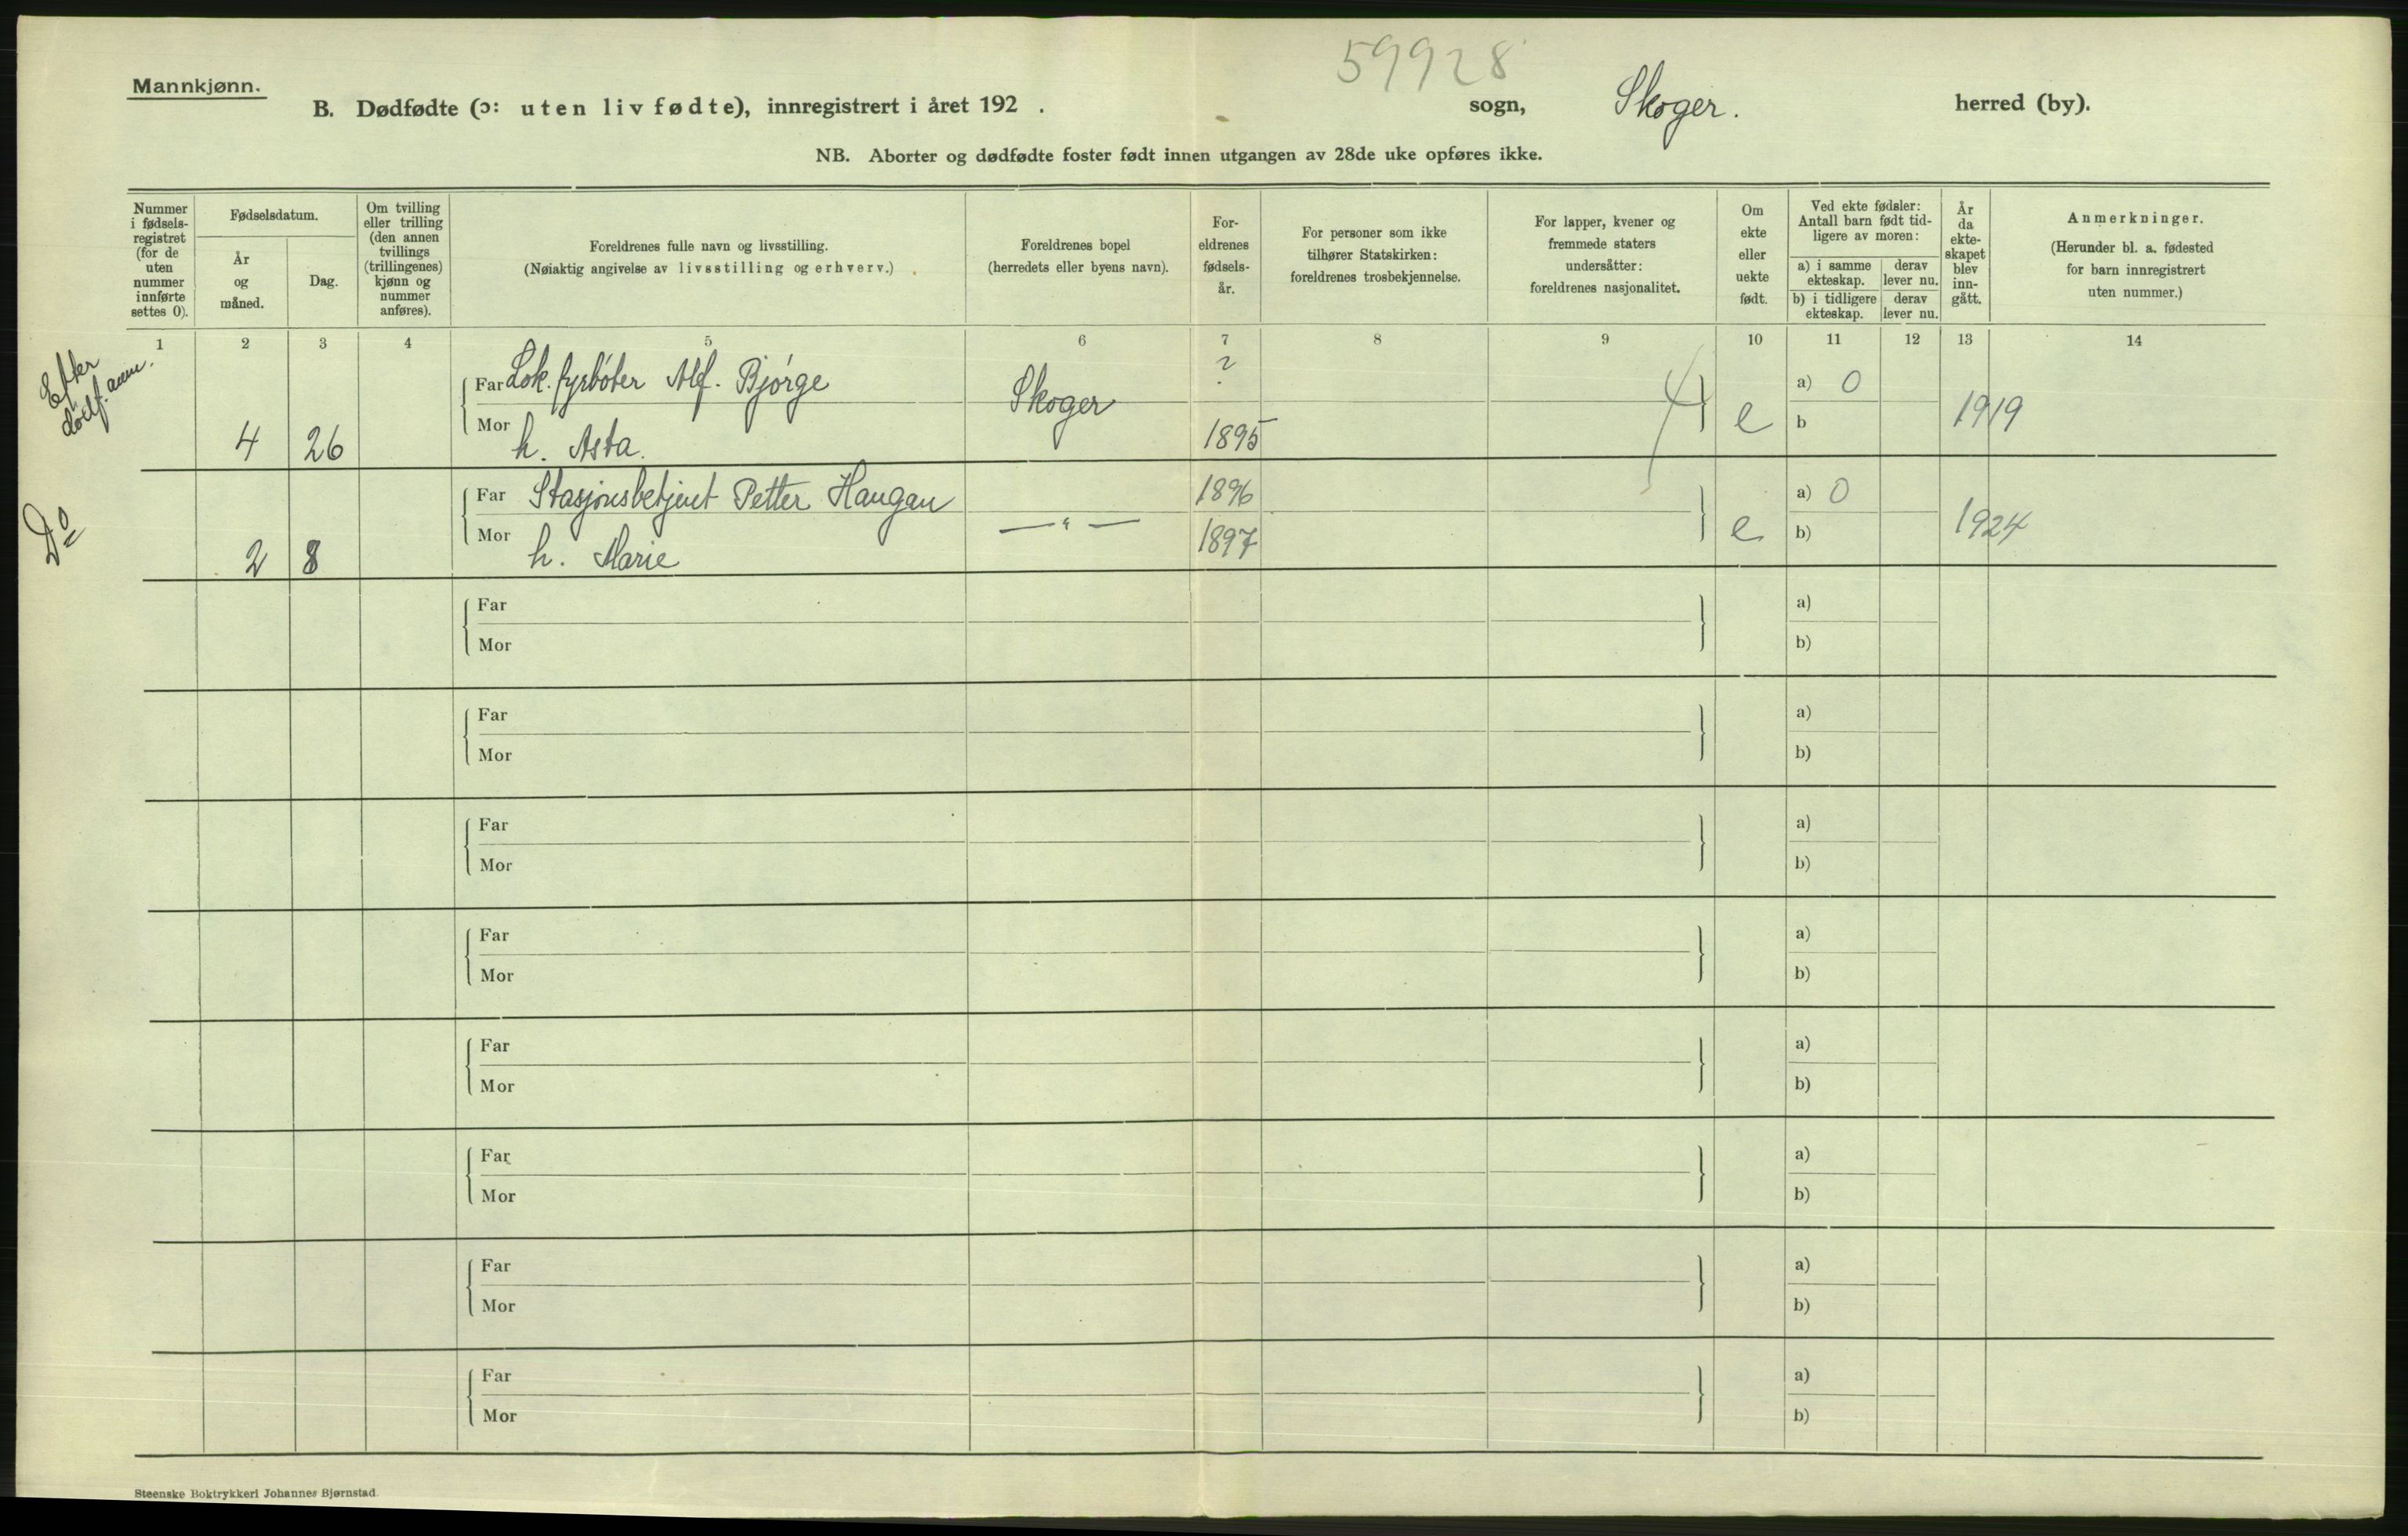 59928
Mannkjønn.
B. Dødfødte (ɔ: uten liv fødte), innregistrert i året 192 . sogn, Skoger. herred (by).
NB. Aborter og dødfødte foster født innen utgangen av 28de uke opføres ikke.
Nummer i fødsels-registret (for de uten nummer innførte settes 0).
Fødselsdatum.
År og måned.
Dag.
Om tvilling eller trilling (den annen tvillings (trillingenes) kjønn og nummer anføres).
Foreldrenes fulle navn og livsstilling.
(Nøiaktig angivelse av livsstilling og erhverv.)
Foreldrenes bopel
(herredets eller byens navn).
For-eldrenes fødsels-år.
For personer som ikke tilhører Statskirken: foreldrenes trosbekjennelse.
For lapper, kvener og fremmede staters undersåtter: foreldrenes nasjonalitet.
Om ekte eller uekte født.
Ved ekte fødsler: Antall barn født tid-ligere av moren:
a) i samme ekteskap.
derav lever nu.
b) i tidligere ekteskap.
derav lever nu.
År da ekte-skapet blev inn-gått.
Anmerkninger.
(Herunder bl. a. fødested for barn innregistrert uten nummer.)
1 2 3 4 5 6 7 8 9 10 11 12 13 14
Efter
dødf. anm.
Far Lok. fyrbøter Alf. Bjørge Skoger ? a) 0
4 26 Mor h. Asta. 1895 e b 1919
Do
Far Stasjonsbetjent Petter Haugan 1896 a) 0
2 8 Mor h. Marie — " — 1897 e b) 1924
Far a)
Mor b)
Far a)
Mor b)
Far a)
Mor b)
Far a)
Mor b)
Far a)
Mor b)
Far a)
Mor b)
Far a)
Mor b)
Far a)
Mor b)
Steenske Boktrykkeri Johannes Bjørnstad.